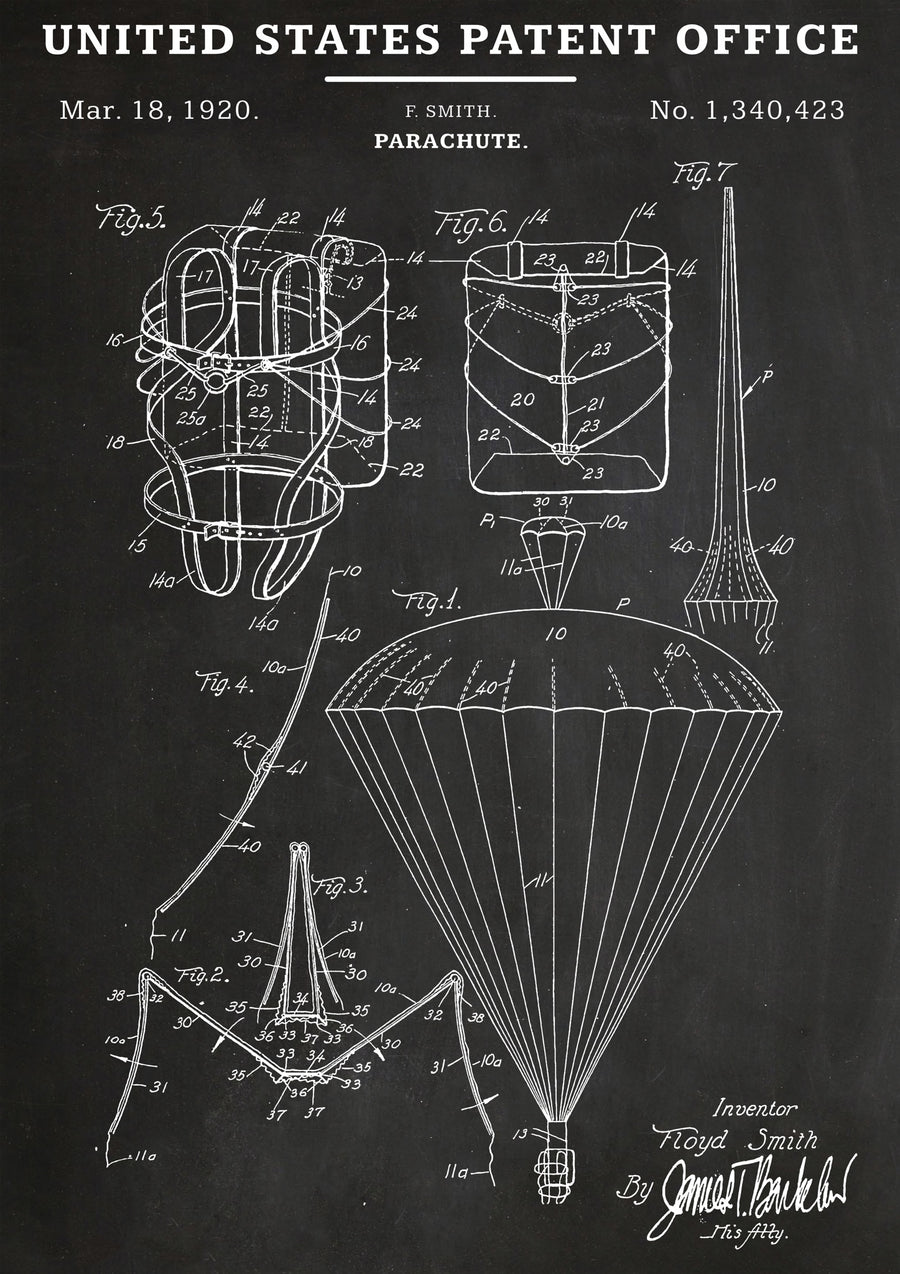 UNITED STATES PATENT OFFICE
Mar. 18, 1920.
F. SMITH.
PARACHUTE.
No. 1,340,423
Fig. 7
Fig. 5.
14
22
14
17
17
14
13
24
16
16
24
25
25
14
25a
22
24
18
14
18
22
15
14a
14a
Fig. 6.
14
14
23
22
14
23
23
20
21
23
22
23
P
10
40
40
11
30
31
P1
10a
11a
Fig. 1.
P
10
40
40
40
11
13
10
40
10a
Fig. 4.
42
41
40
11
Fig. 3.
31
31
10a
30
30
34
35
35
36
33
37
33
36
Fig. 2.
38
32
30
10a
32
38
10a
30
33
34
35
35
33
36
31
37
37
31
10a
11a
11a
Inventor
Floyd Smith
By
His Atty.